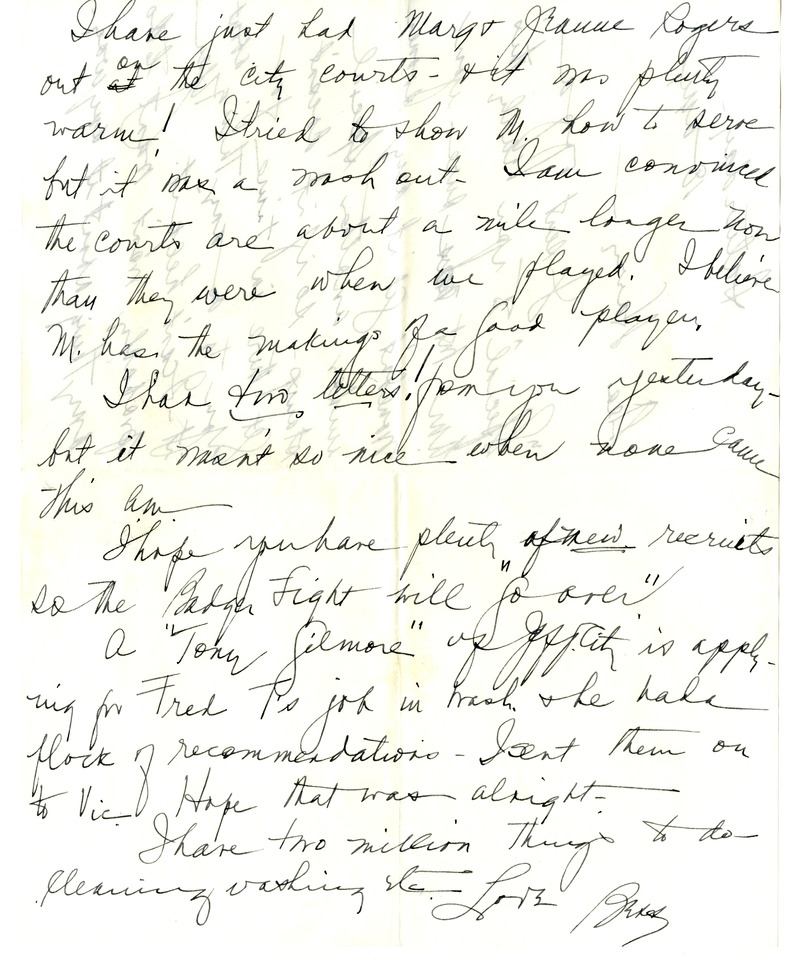 I have just had Marg & Jeanne Rogers
out at on the city courts - & it was plenty
warm! I tried to show M. how to serve
but it was a wash out - I am convinced
the courts are about a mile longer now
than they were when we played. I believe
M. has the makings of a good player.
I had two letters! from you yesterday -
but it wasn't so nice when none came
this am
I hope you have plenty of new recruits
so the Badger Fight will "go over"
A "Tony Gilmore" of Jeff City is apply-
ing for Fred T's job in Wash. & he had a
flock of recommendations - I sent them on
to Vic. Hope that was alright -
I have two million things to do -
cleaning washing etc - Love Bess